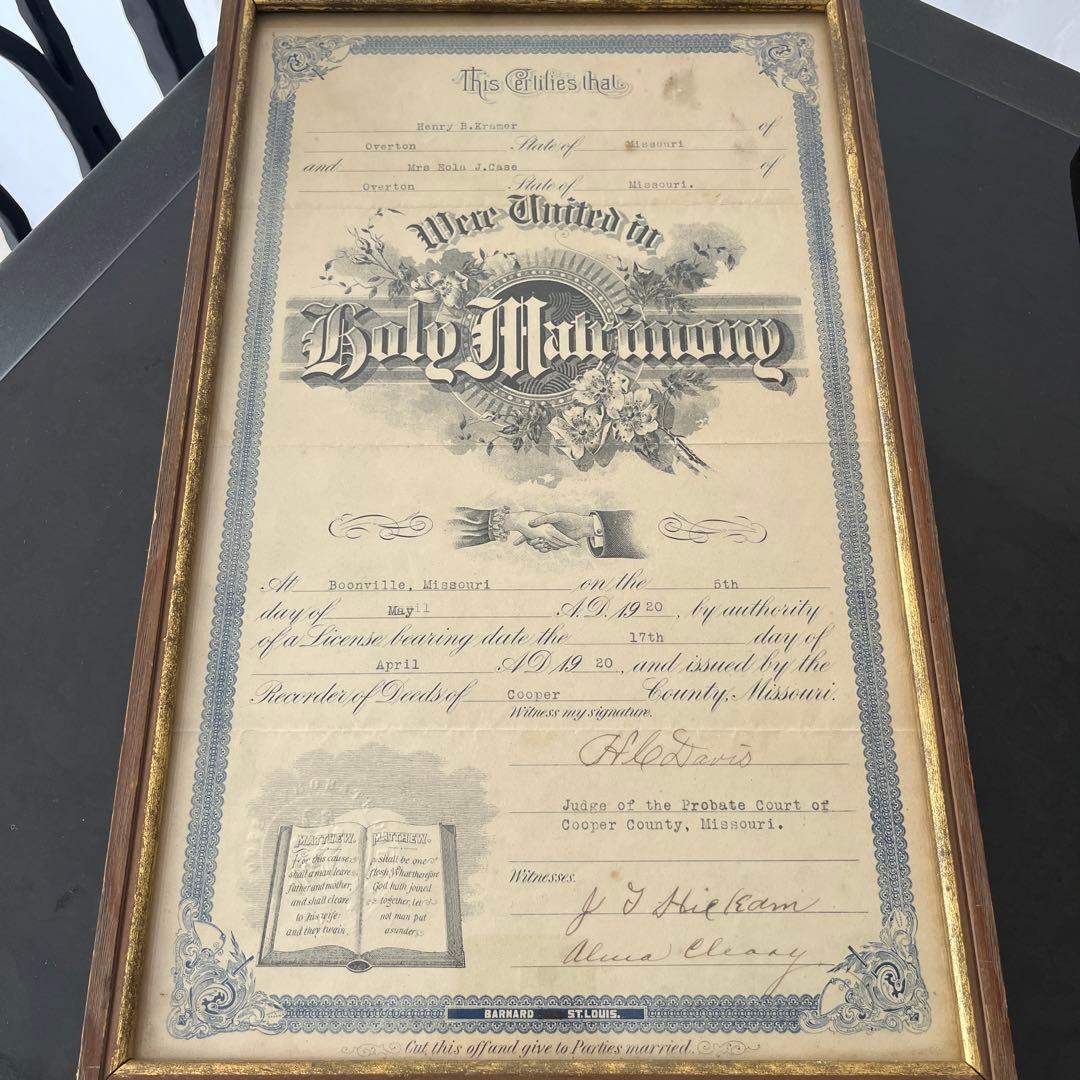 This Certifies that
Henry B.Kramer of
Overton State of Missouri
and Mrs Eola J.Case of
Overton State of Missouri.
Were United in
Holy Matrimony
At Boonville, Missouri on the 5th
day of Mayil A.D. 19 20, by authority
of a License bearing date the 17th day of
April A.D 19 20, and issued by the
Recorder of Deeds of Cooper County, Missouri.
Witness my signature.
H C Davis
Judge of the Probate Court of
Cooper County, Missouri.
Witnesses.
J T Hickam
Alma Cleary
MATTHEW.
For this cause
shall a man leave
father and mother,
and shall cleave
to his wife:
and they twain
MATTHEW.
shall be one
flesh, What therefore
God hath joined
together, let
not man put
asunder
BARNARD ST. LOUIS.
Cut this off and give to Parties married.